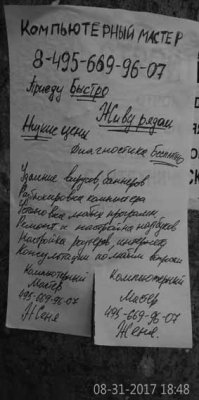 КОМПЬЮТЕРНЫЙ МАСТЕР
8-495-669-96-07
Приеду Быстро
Живу рядом
Низкие цены
Диагностика бесплатно
Удаление вирусов, баннеров
Разблокировка компьютера
Установка любых программ
Ремонт и настройка ноутбуков
Настройка роутеров, интернет
Консультации по любым вопросам
Компьютерный
Мастер
495-669-96-07
Женя
Компьютерный
Мастер
495-669-96-07
Женя.
08-31-2017 18:48